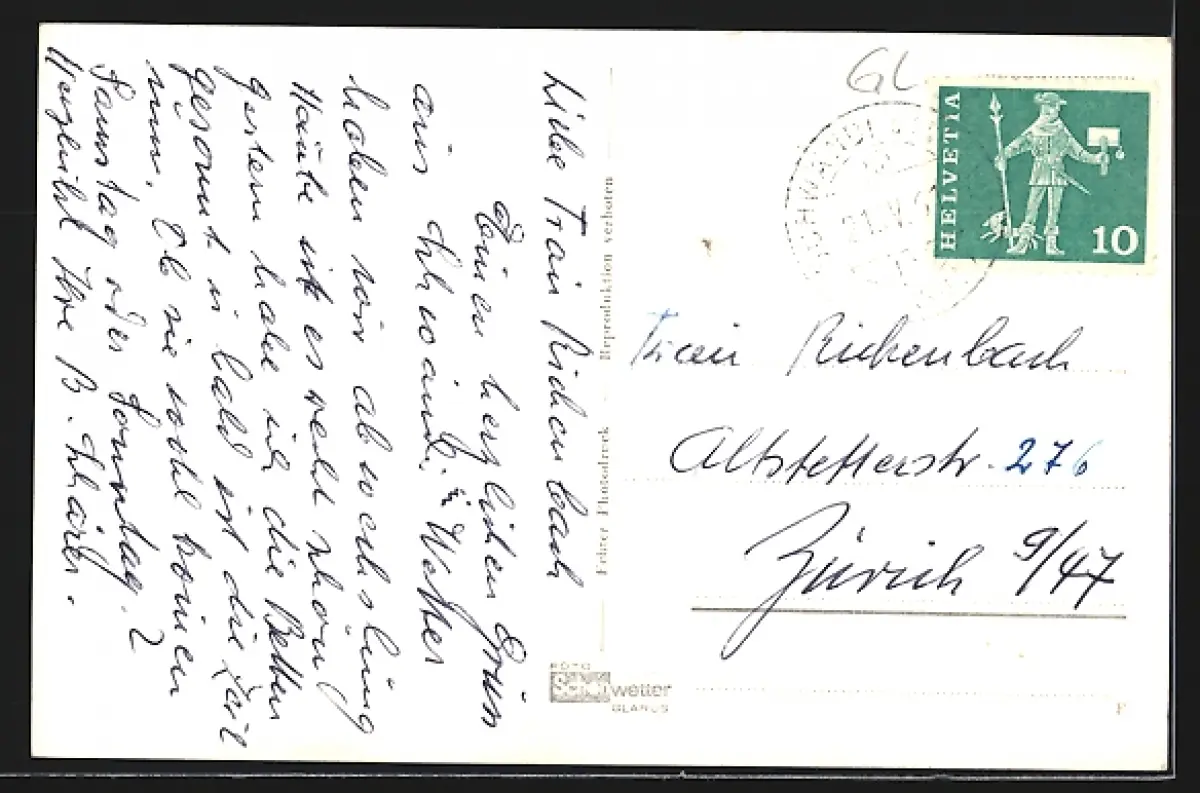 Liebe Frau Richenbach
Einen herzlichen Gruss
aus Schwändi. Wetter
haben wir abwechslung
Heute ist es recht schön
gestern habe ich die Betten
gesonnt ist die Zeit
nun. Ob sie wohl kommen
Samstag oder Sonntag. ?
Herzlichst Ihre B. Schärer.
Fehrer Photodruck Reproduktion verboten
FOTO
Schönwetter
GLARUS
GL
SCHWÄNDI
21. V.
HELVETIA
10
Frau Richenbach
Altstetterstr. 276
Zürich 9/47
F